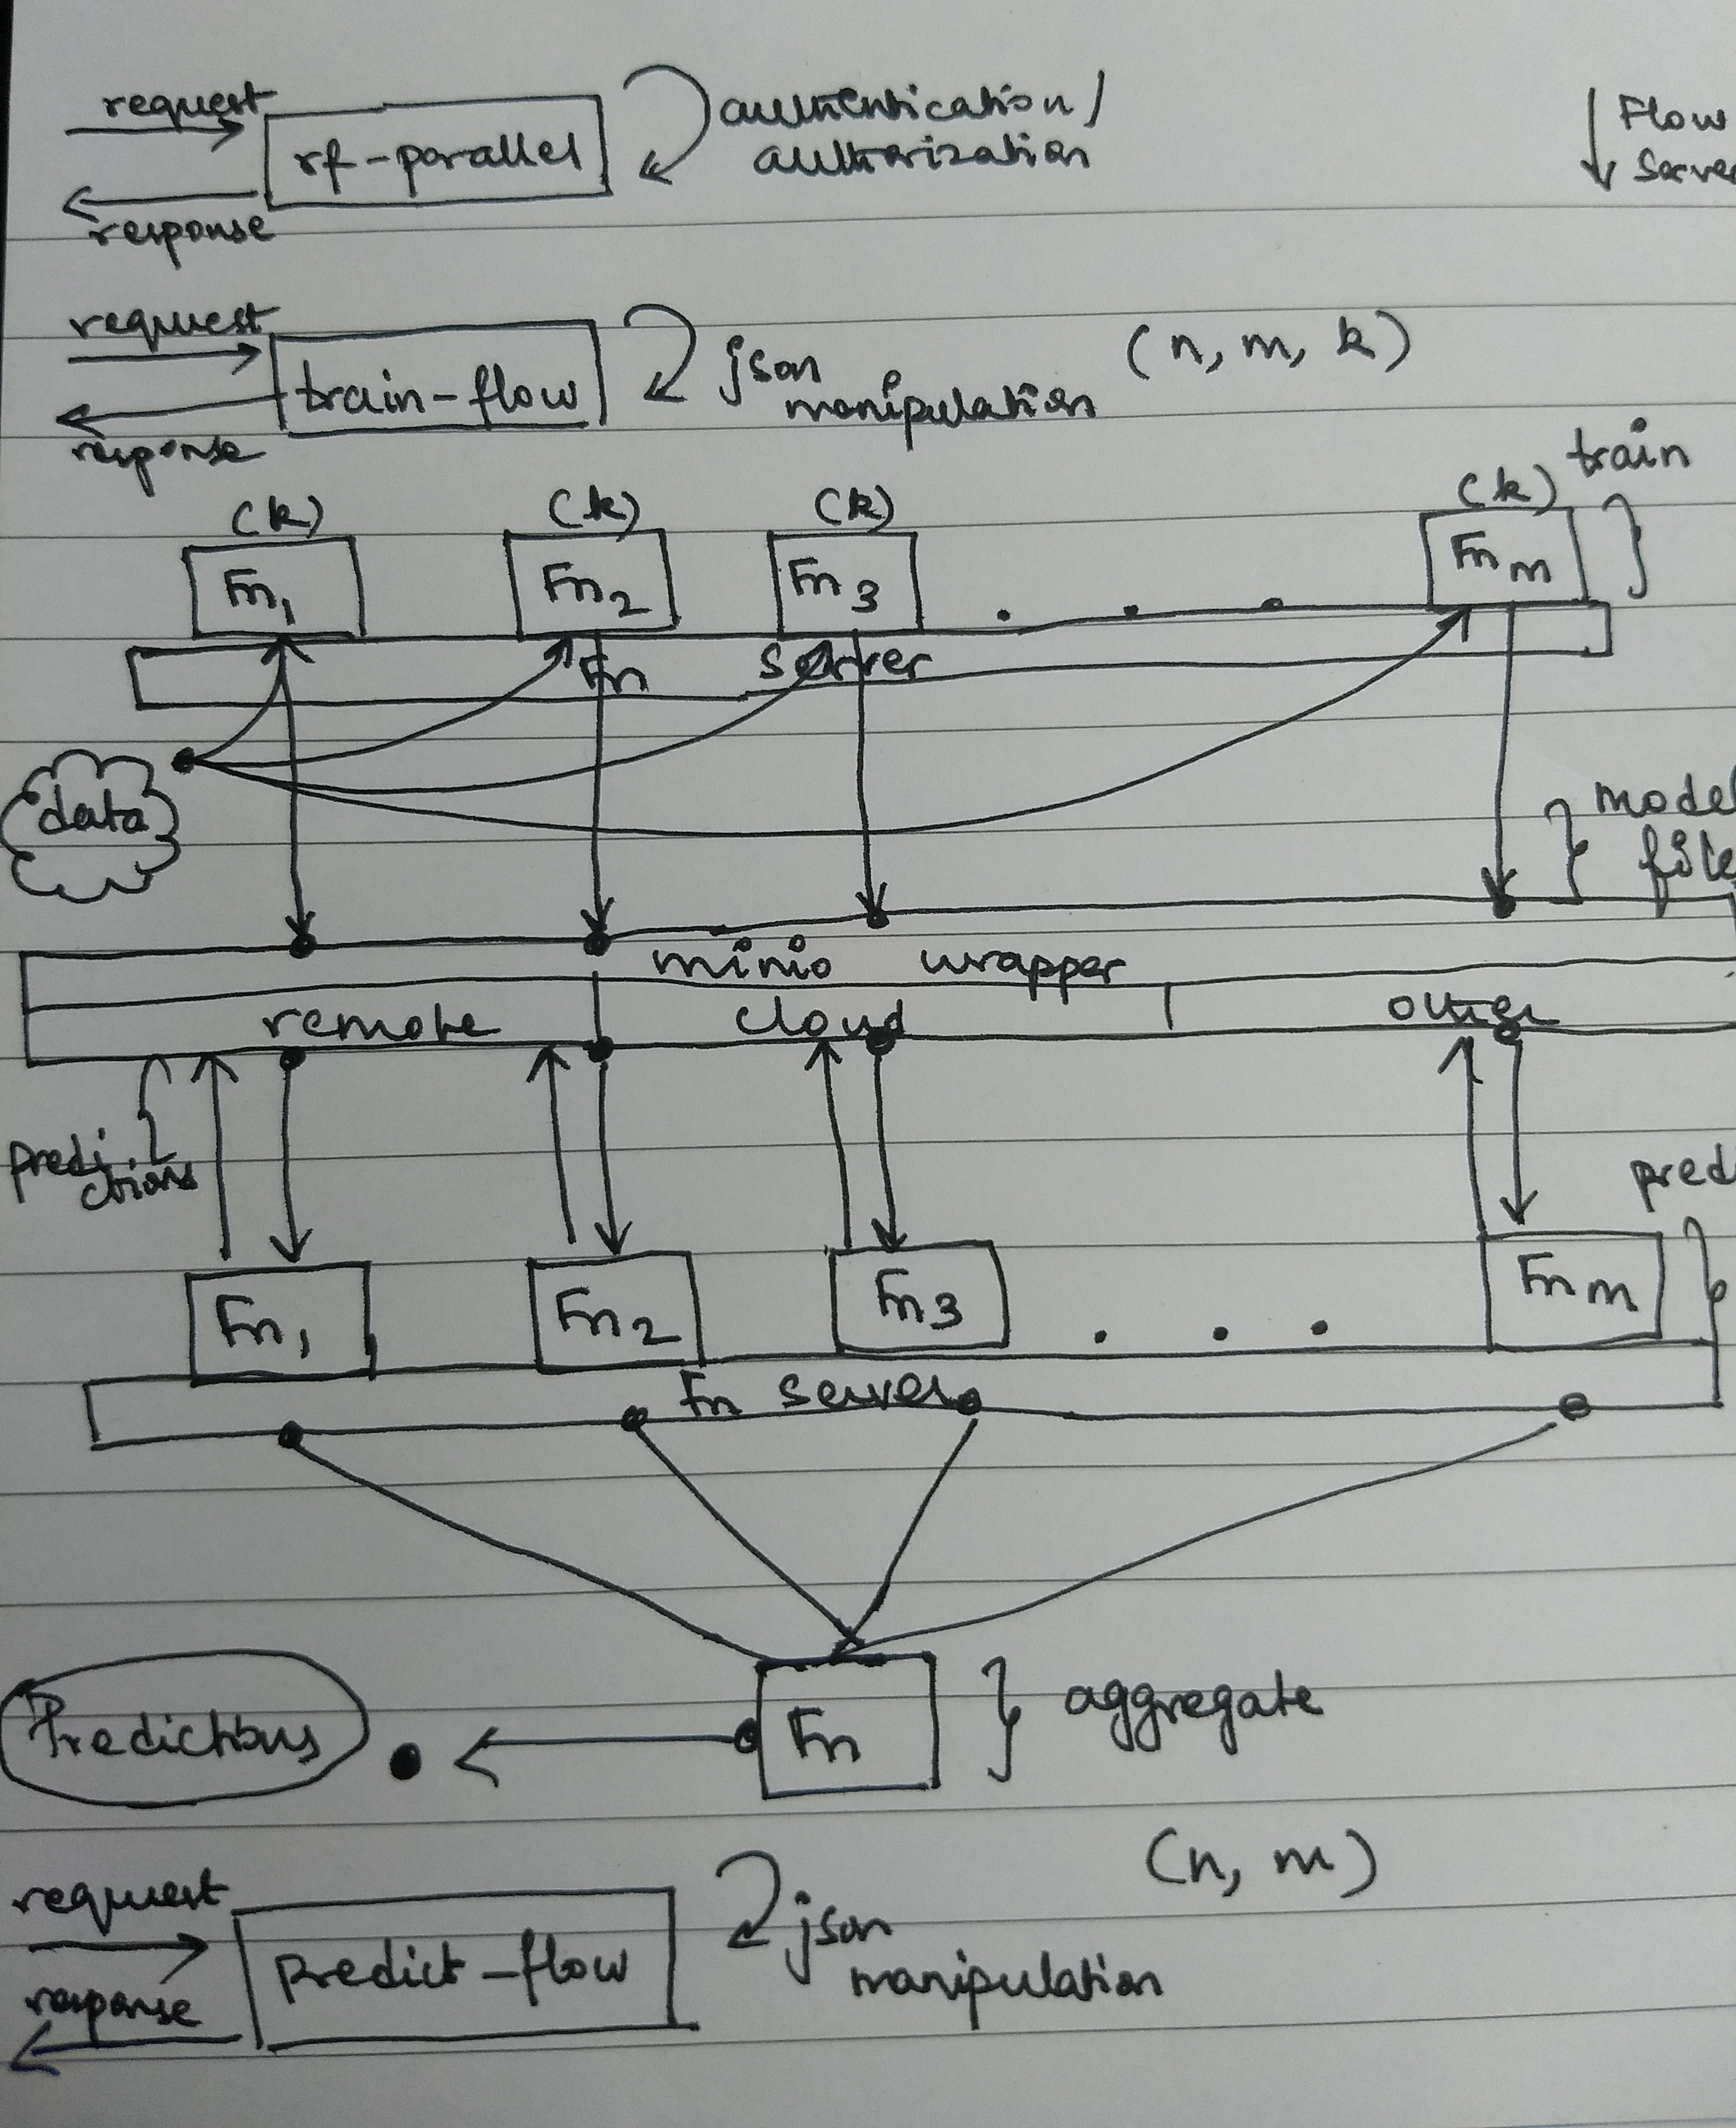 request
rf-parallel
response
authentication/
authorization
Flow
Server
request
train-flow
response
json
manipulation
(n, m, k)
train
(k)
(k)
(k)
(k)
Fn1
Fn2
Fn3
. . .
Fn m
Fn server
data
model
file
minio wrapper
remote cloud
other
predi
ctions
pred
Fn1
Fn2
Fn3
. . .
Fn m
Fn server
Predictions
Fn
aggregate
(n, m)
request
predict-flow
response
json
manipulation